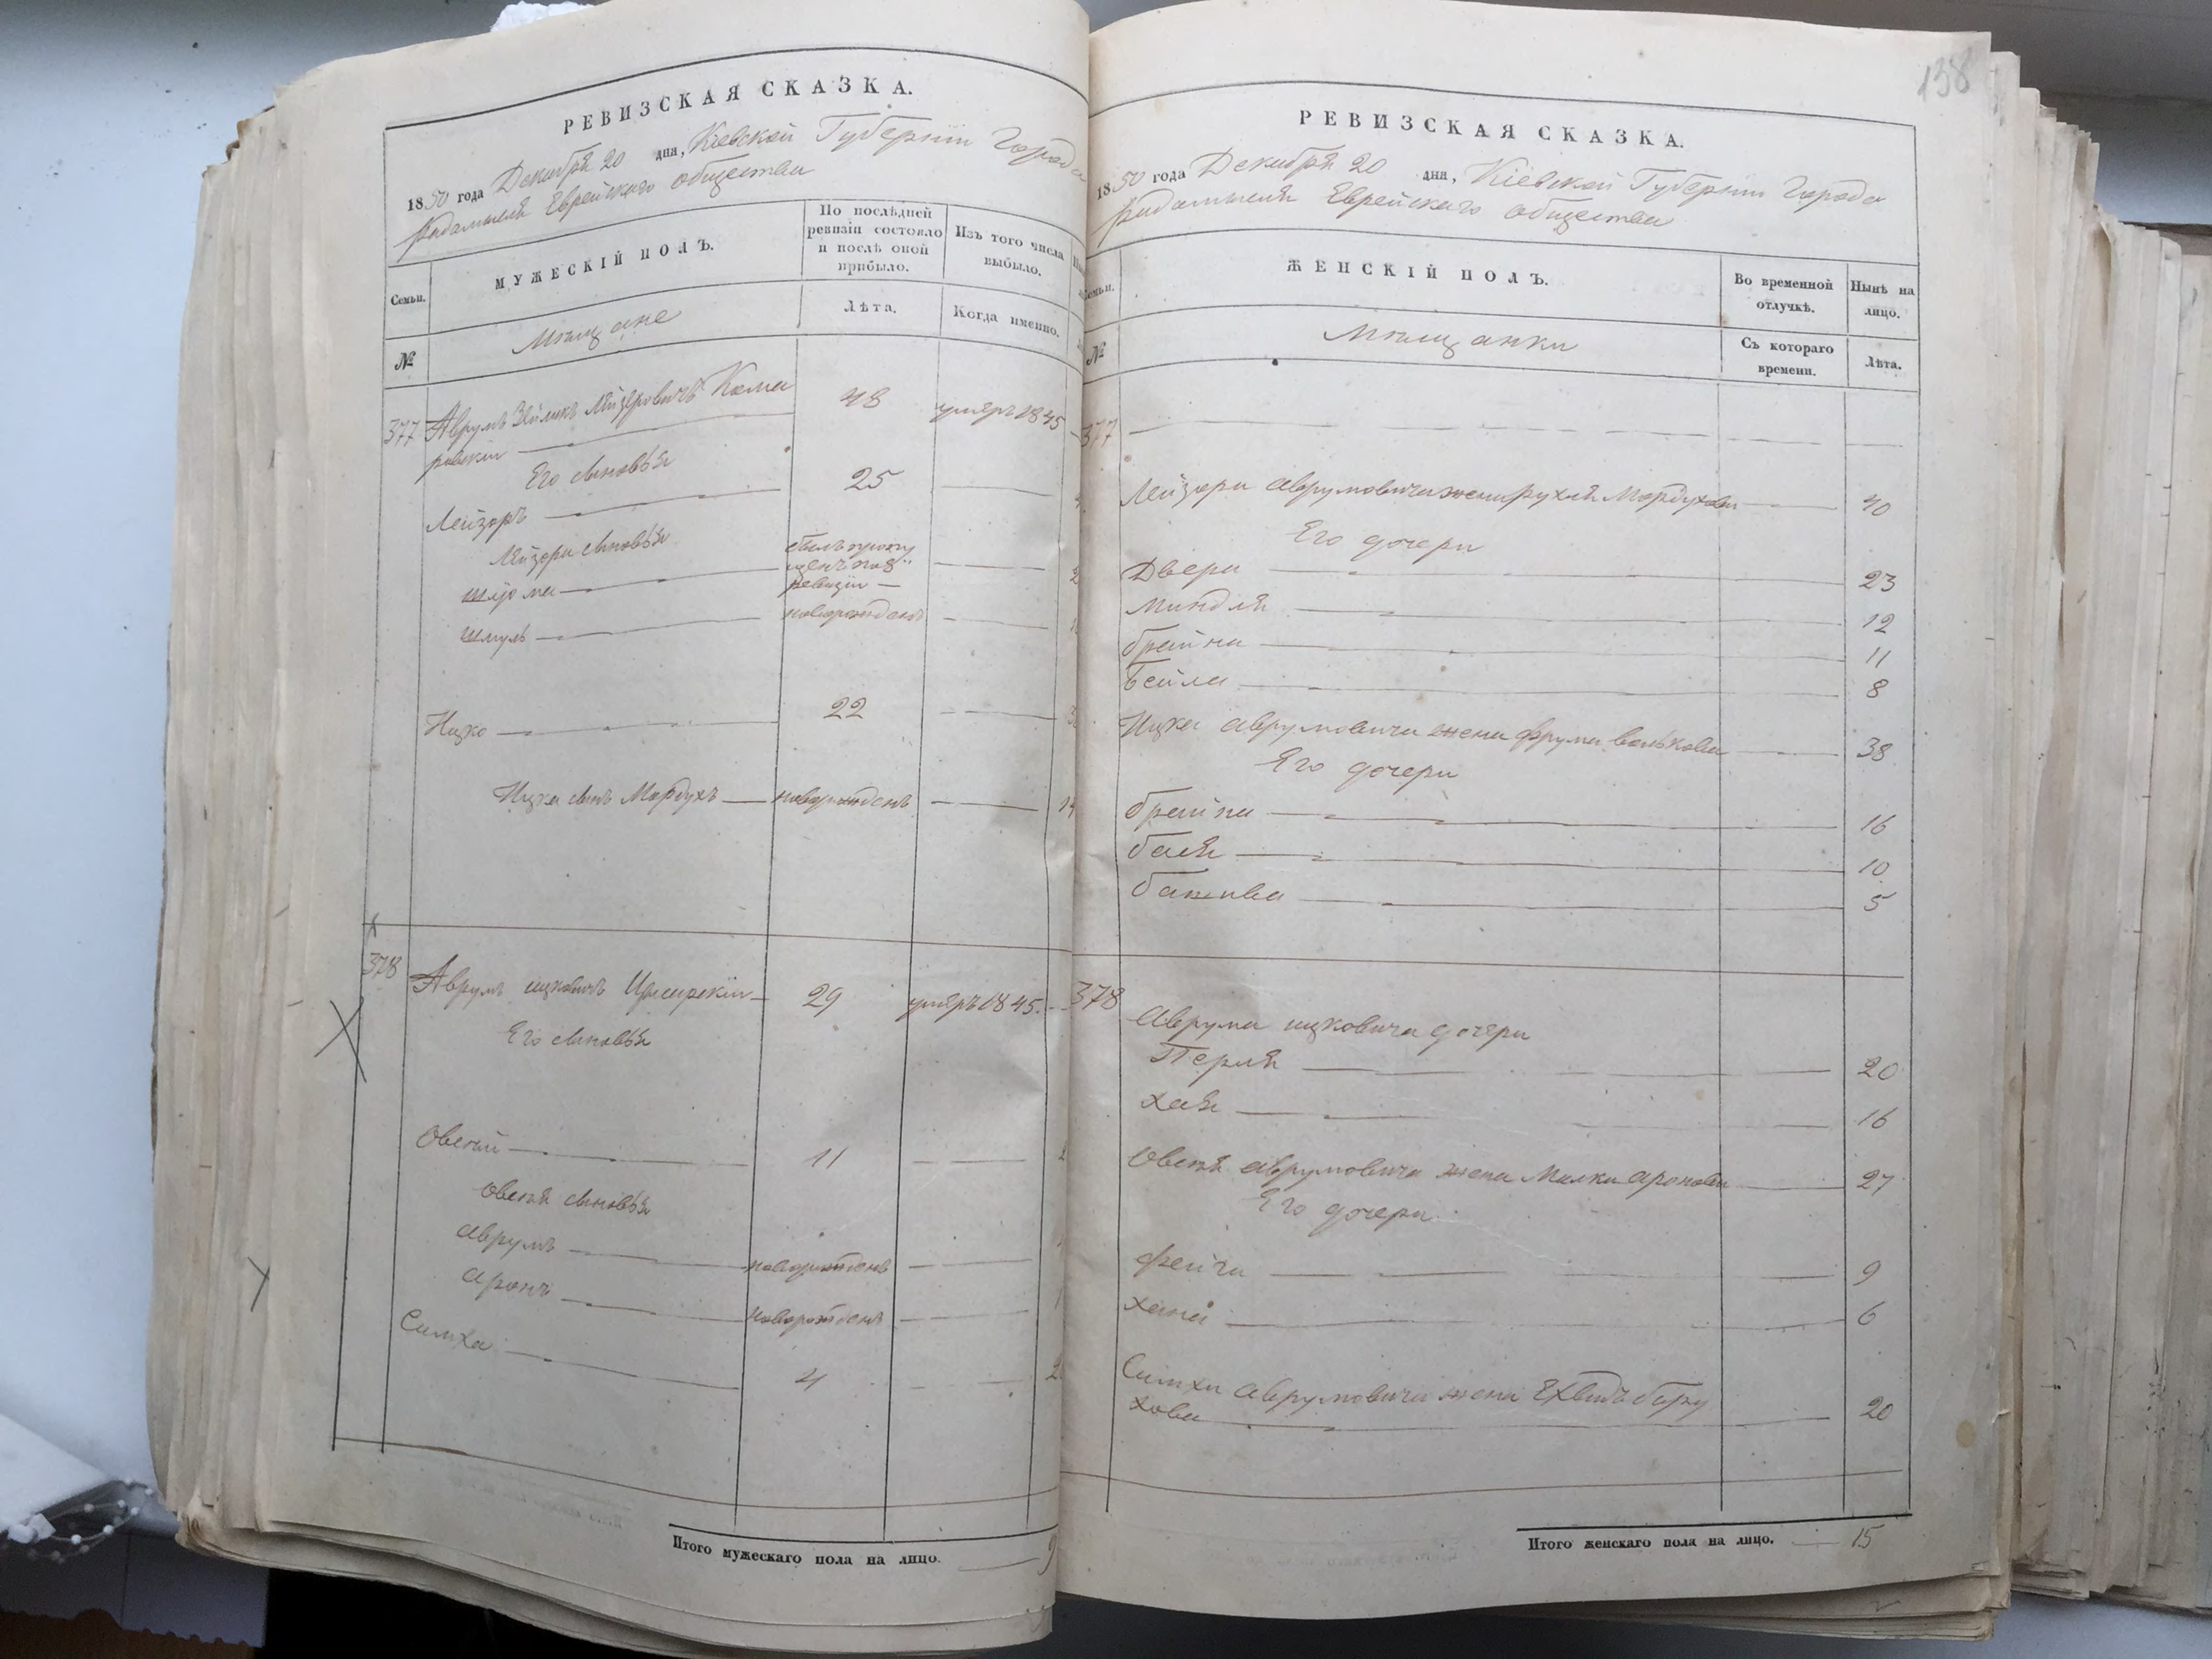 РЕВИЗСКАЯ СКАЗКА.
1850 года Декабря 20 дня, Кіевской Губерніи Города
Радомысля Еврейскаго общества
Семьи.
МУЖЕСКІЙ ПОЛЪ.
По послѣдней
ревизіи состояло
и послѣ оной
прибыло.
Изъ того числа
выбыло.
№
Мѣщане
Лѣта.
Когда именно.
377 Аврумъ Зейликъ Лейзеровичъ Кома 48 умеръ 1845
ровскій
Его сыновья
Лейзоръ 25
Лейзора сыновья
Шлома былъ пропу
щенъ по 8
ревизіи
Шмуль новорожденъ
Ицко 22
Ицка сынъ Мордухъ новорожденъ 14
378 Аврумъ ицковичъ 29 умеръ 1845.
Его сыновья
Овсій 11
Овсія сыновья
Аврумъ новорожденъ
Аронъ новорожденъ
Симха 4
Итого мужескаго пола на лицо. 9
138
РЕВИЗСКАЯ СКАЗКА.
1850 года Декабря 20 дня, Кіевской Губерніи Города
Радомысля Еврейскаго общества
Семьи.
ЖЕНСКІЙ ПОЛЪ.
Во временной
отлучкѣ.
Нынѣ на
лицо.
№
Мѣщанки
Съ котораго
времени.
Лѣта.
377
Лейзора аврумовича жена Рухля Мордухова 40
Его дочери
Двера 23
Миндля 12
брайна 11
Бейла 8
Ицка аврумовича жена фрума 38
Его дочери
брайна 16
бася 10
батшва 5
378
Аврума ицковича дочери
Перля 20
Хая 16
Овсія аврумовича жена Малка аронова 27
Его дочери
фейга 9
хана 6
Симхи аврумовича жена беру 20
хова
Итого женскаго пола на лицо. 15